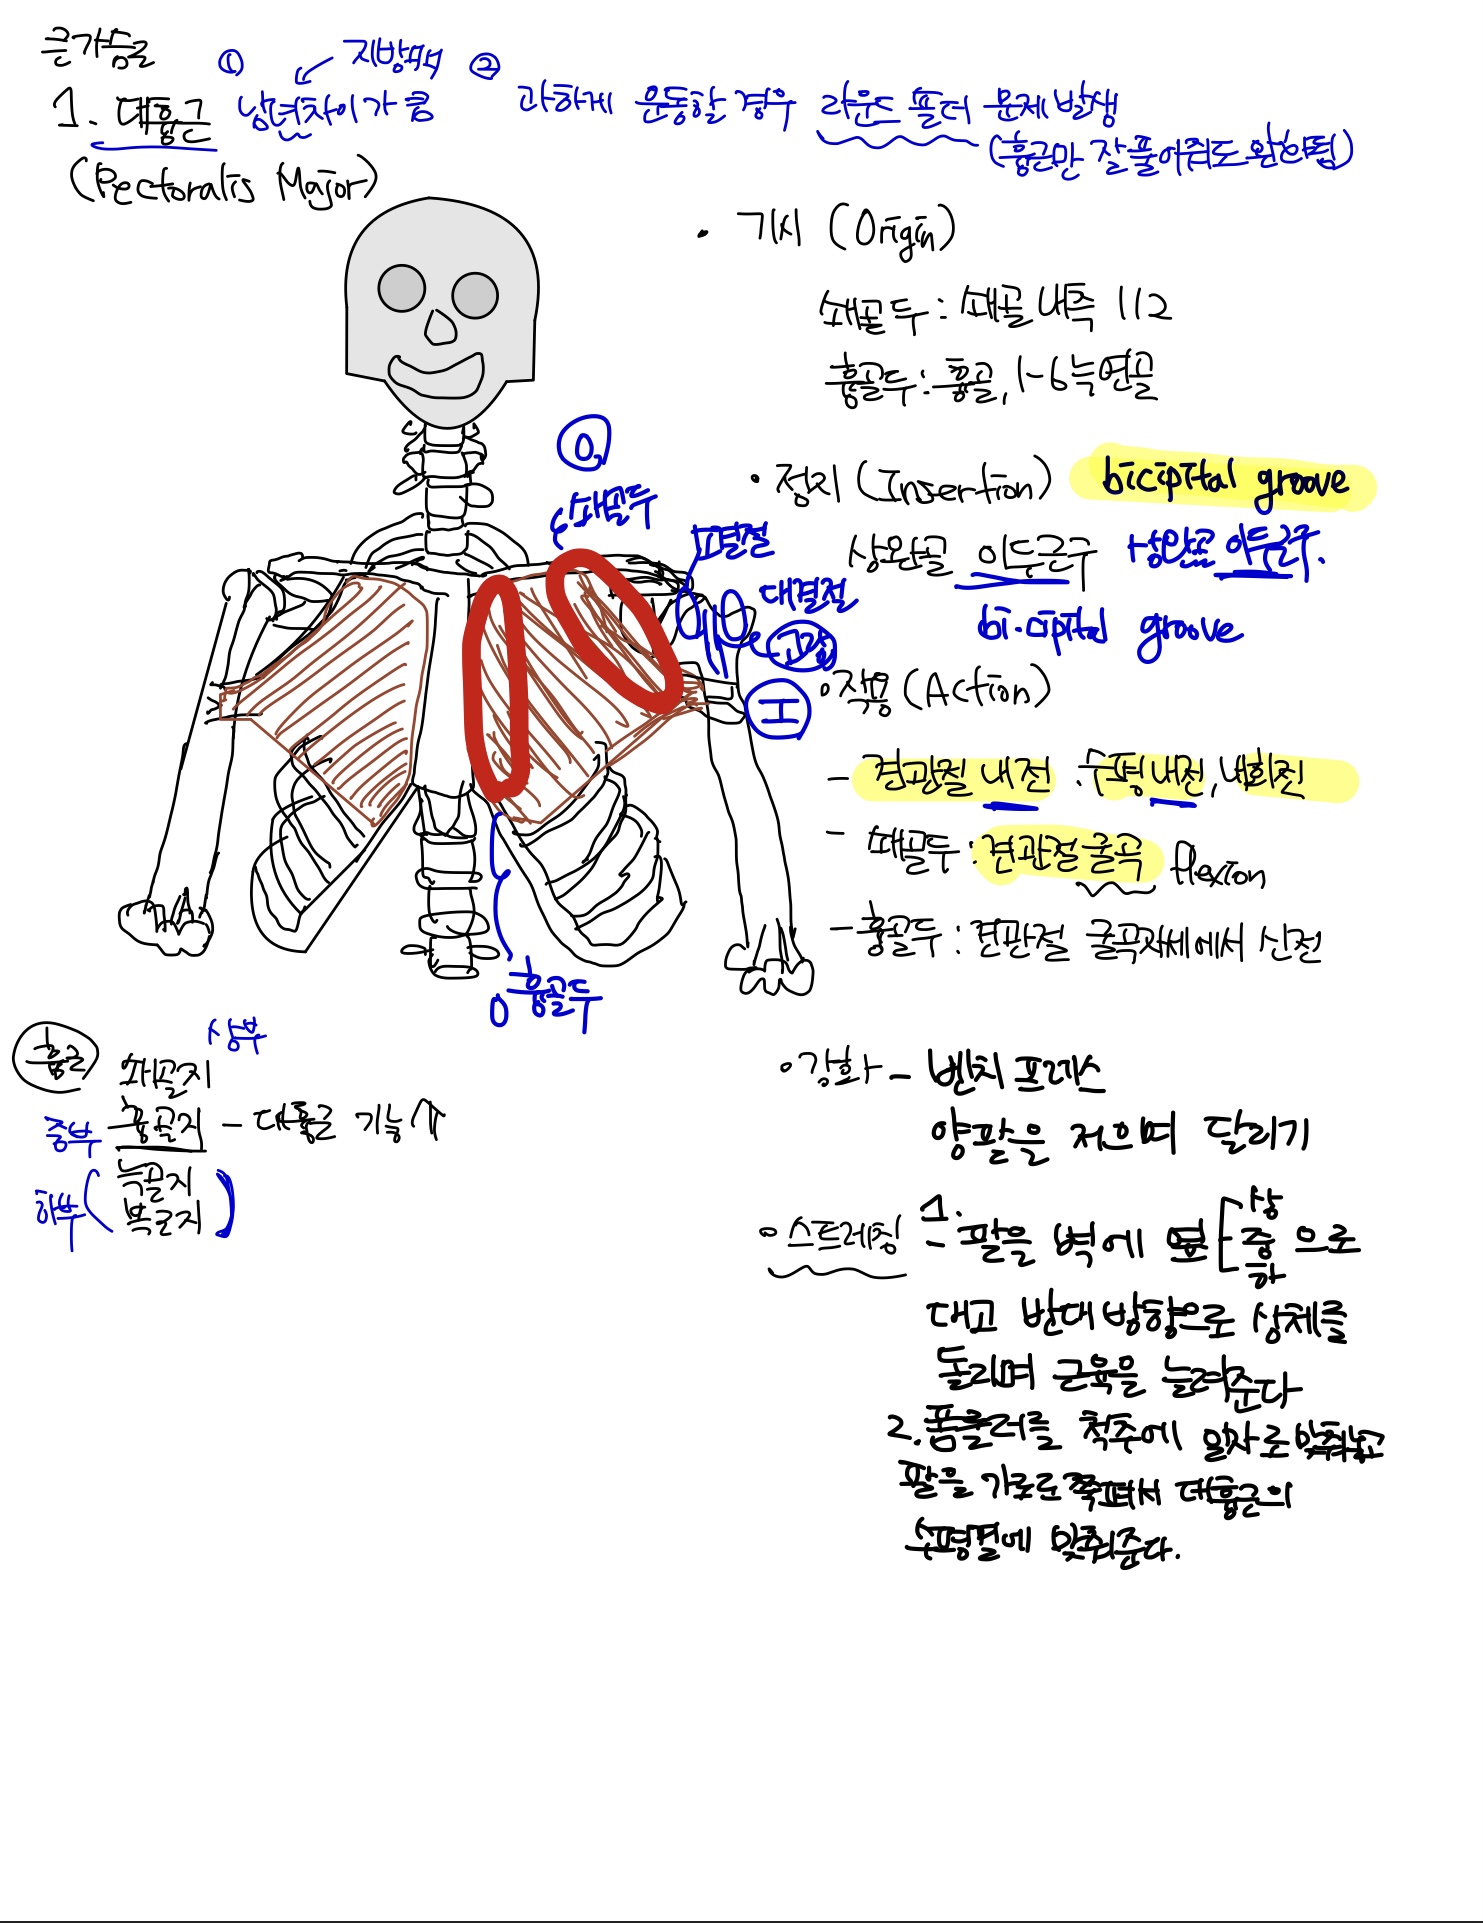 큰가슴근
① 지방때 ②
1. 대흉근 남녀차이가 큼 과하게 운동할 경우 라운드 숄더 문제 발생
(흉근만 잘 풀어줘도 완화됨)
(Pectoralis Major)
• 기시 (Origin)
쇄골두 : 쇄골 내측 1/2
흉골두 : 흉골, 1-6 늑연골
O
쇄골두
• 정지 (Insertion) bicipital groove
상완골 이두근구 상완골 이두근구.
bicipital groove
소결절
대결절
고랑
I
• 작용 (Action)
- 견관절 내전, 수평내전, 내회전
- 쇄골두 : 견관절 굴곡 flexion
- 흉골두 : 견관절 굴곡자세에서 신전
O 흉골두
흉근 쇄골지 상부
중부 흉골지 - 대흉근 기능↑
하부 ( 늑골지
복근지 )
• 강화 - 벤치 프레스
양팔을 저으며 달리기
• 스트레칭 1. - 팔을 벽에 상 중 하 으로
대고 반대방향으로 상체를
돌리며 근육을 늘려준다
2. 폼롤러를 척추에 일자로 맞춰놓고
팔을 가로로 쭉펴서 대흉근의
수평결에 맞춰준다.